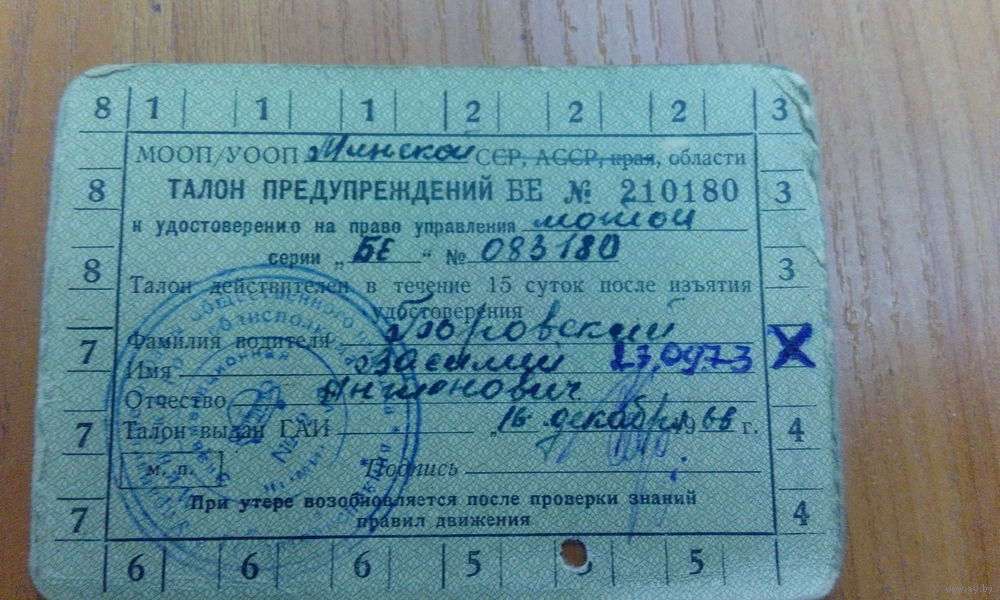 8 1 1 1 2 2 2 3
МООП/УООП Минской ССР, АССР, края, области
8 ТАЛОН ПРЕДУПРЕЖДЕНИЙ БЕ № 210180 3
к удостоверению на право управления мотои
серии „БЕ“ № 083180
8 Талон действителен в течение 15 суток после изъятия 3
удостоверения
Фамилия водителя
7 Имя Василий 27.09.73 X
Отчество Антонович
7 Талон выдан ГАИ „16 декабря 1966 г. 4
м. п. Подпись
При утере возобновляется после проверки знаний
7 правил движения 4
6 6 6 5 5
www.ay.by